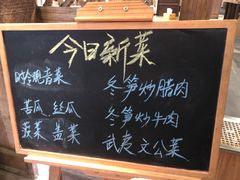 今日新菜
时令现青菜
苦瓜、丝瓜
菠菜 盖菜
冬笋炒腊肉
冬笋炒牛肉
武夷文公菜